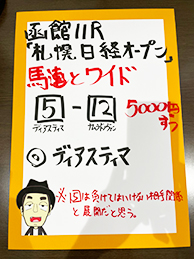 函館11R
「札幌日経オープン」
馬連とワイド
5 - 12 5000円
ディアスティマ ナムラドノヴァン ずつ
◎ディアスティマ
※図は負けてはいけない相手関係
と展開だと思う。